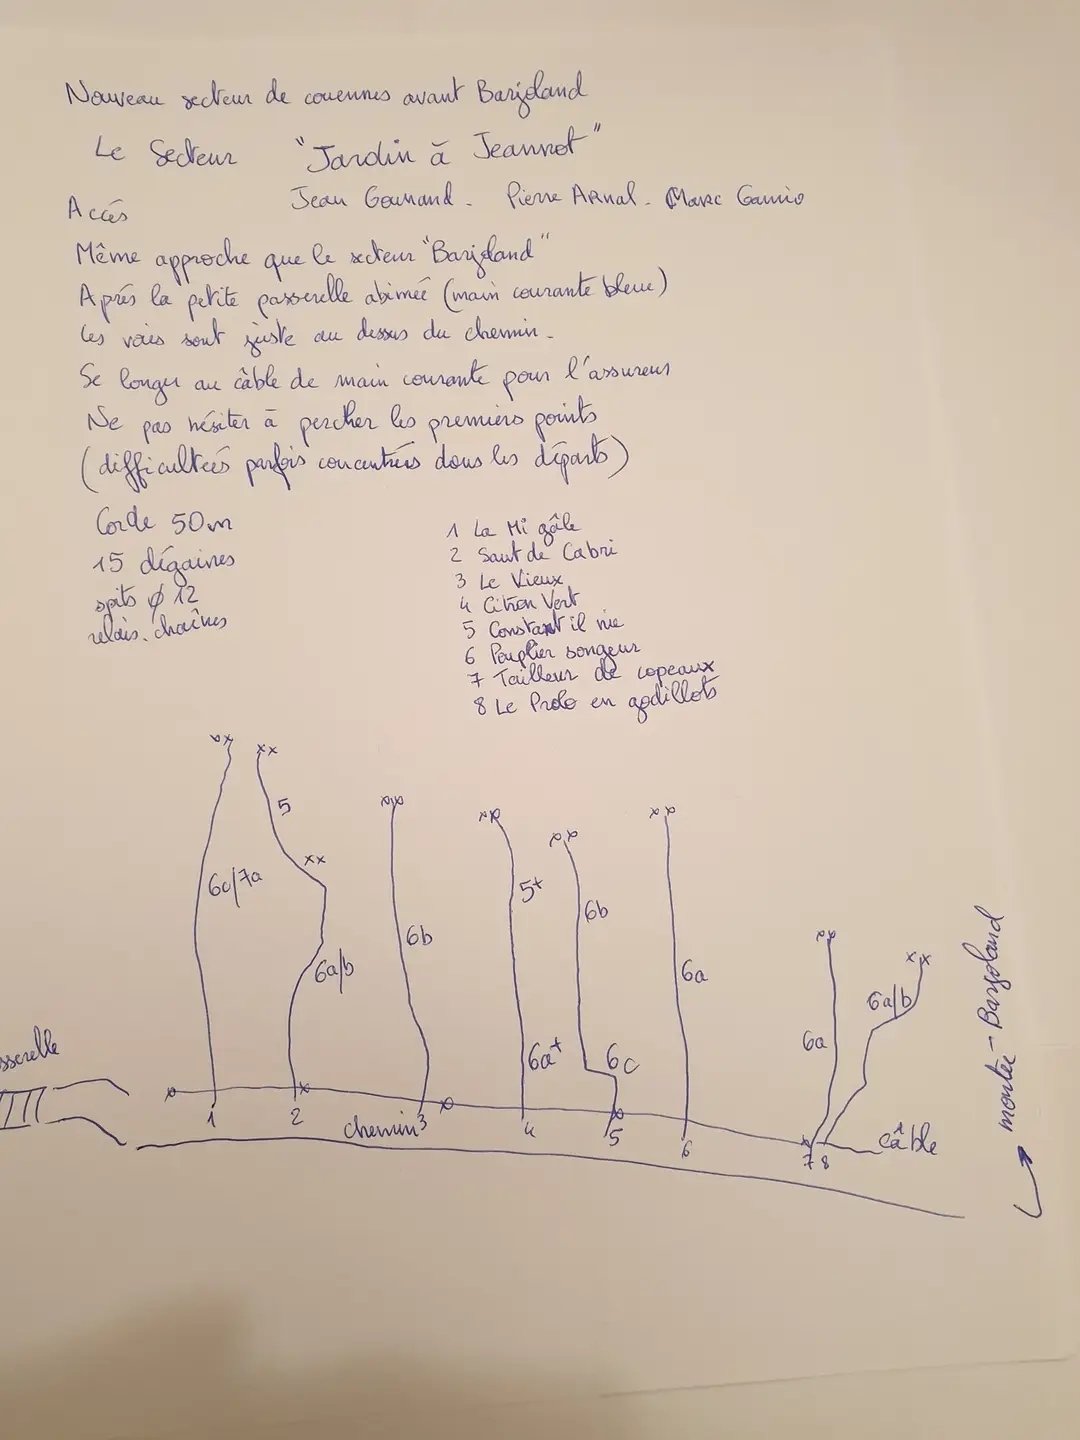 Nouveau secteur de couennes avant Barjoland
Le Secteur "Jardin à Jeannot"
Jean Gounand - Pierre Arnal - Marc Gamio
Accés
Même approche que le secteur "Barjoland"
Aprés la petite passerelle abimée (main courante bleue)
les voies sont juste au dessus du chemin.
Se longer au câble de main courante pour l'assureur
Ne pas hésiter à percher les premiers points
(difficultées parfois concentrées dans les départs)
Corde 50m
15 dégaines
spits ø 12
relais. chaînes
1 La Mi gâle
2 Saut de Cabri
3 Le Vieux
4 Citron Vert
5 Constant il nie
6 Peuplier songeur
7 Tailleur de copeaux
8 Le Prolo en godillots
5
6c/7a
5+
6b
6b
6a/b
6a
6a/b
6a
6a+
6c
sserelle
1
2
chemin
3
4
5
6
7 8
câble
montée - Barjoland